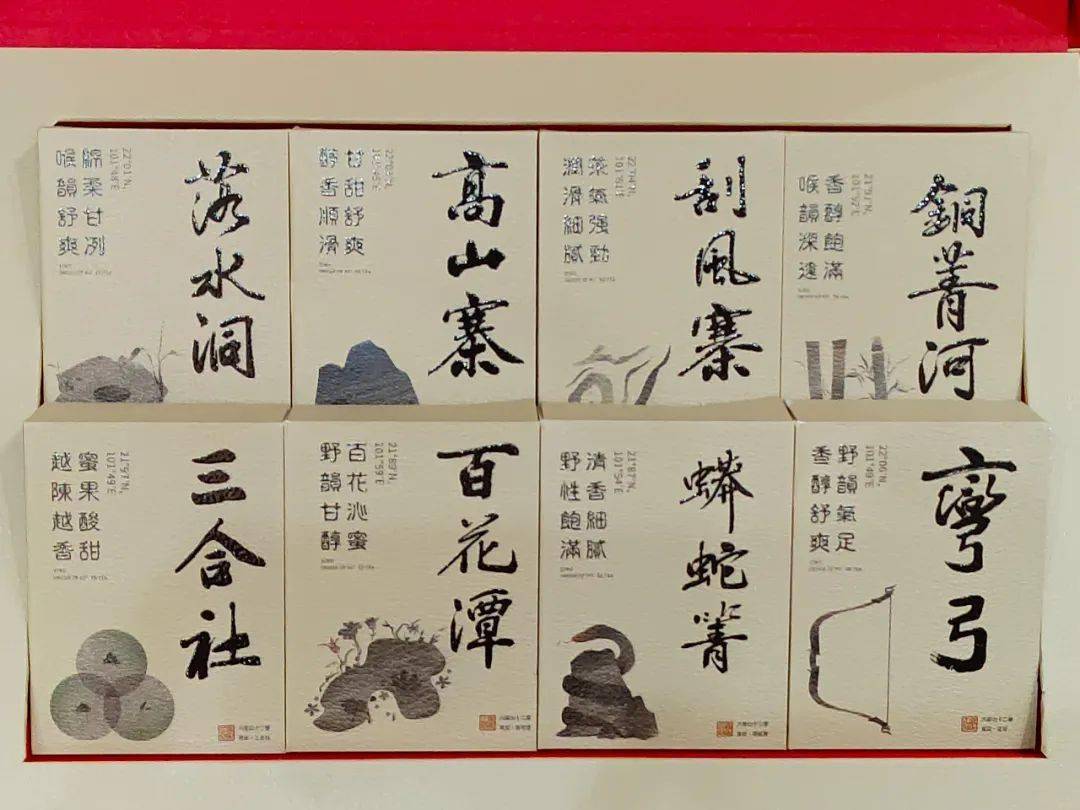 落水洞
22°01'N,
101°48'E
綿柔甘冽
喉韻舒爽
高山寨
甘甜舒爽
醇香順滑
刮風寨
茶氣强勁
潤滑細膩
銅菁河
香醇飽滿
喉韻深遠
三合社
21°97'N,
101°49'E
蜜果酸甜
越陳越香
百花潭
21°89'N,
101°59'E
百花沁蜜
野韻甘醇
蟒蛇箐
21°87'N,
101°54'E
清香細膩
野性飽滿
彎弓
22°06'N,
101°49'E
野韻氣足
香醇舒爽